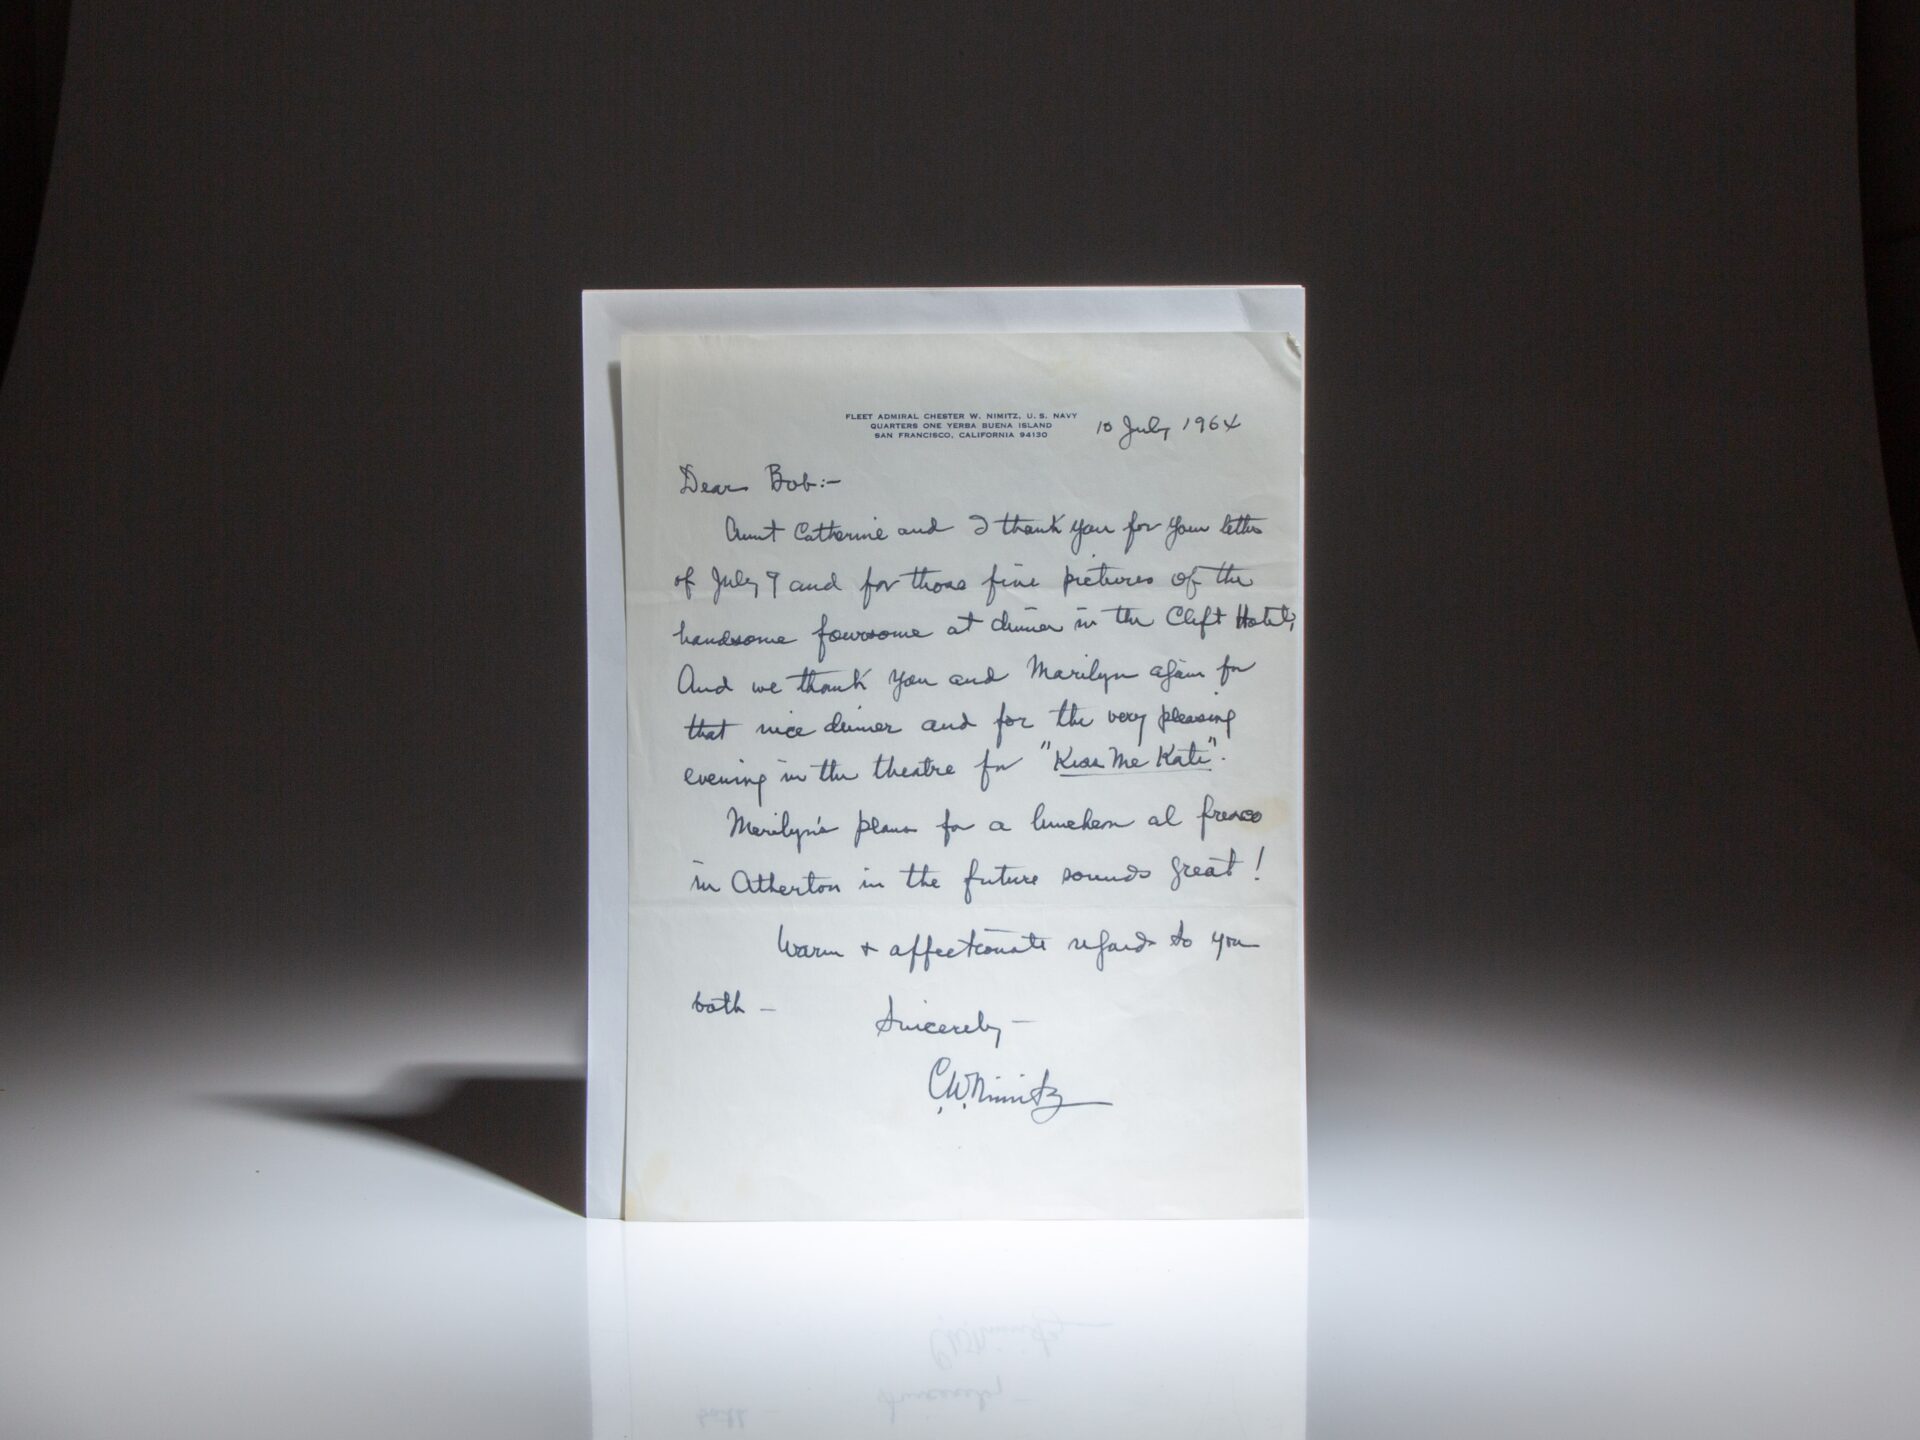 FLEET ADMIRAL CHESTER W. NIMITZ, U. S. NAVY
QUARTERS ONE YERBA BUENA ISLAND
SAN FRANCISCO, CALIFORNIA 94130
10 July 1964
Dear Bob:-
Aunt Catherine and I thank you for your letter
of July 9 and for those fine pictures of the
handsome foursome at dinner in the Clift Hotel,
And we thank you and Marilyn again for
that nice dinner and for the very pleasing
evening in the theatre for "Kiss Me Kate".
Marilyn's plans for a luncheon al fresco
in Atherton in the future sounds great!
Warm & affectionate regards to you
both -
Sincerely -
C.W.Nimitz